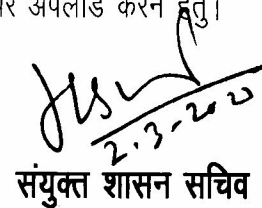 अपलोड करने हेतु।
2.3-2020
संयुक्त शासन सचिव